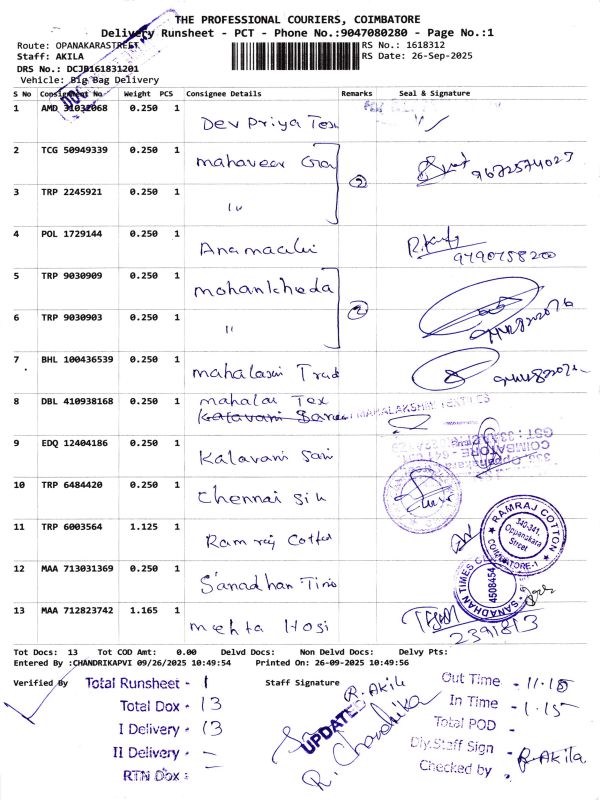 THE PROFESSIONAL COURIERS, COIMBATORE
Delivery Runsheet - PCT - Phone No.:9047080280 - Page No.:1
Route: OPANAKARASTREET
RS No.: 1618312
Staff: AKILA
RS Date: 26-Sep-2025
DRS No.: DCJB161831201
Vehicle: Big Bag Delivery
S No Consignment No Weight PCS Consignee Details Remarks Seal & Signature
1 AMD 31031068 0.250 1 Dev Priya Tex
2 TCG 50949339 0.250 1 mahaveer
3 TRP 2245921 0.250 1 "
2
4 POL 1729144 0.250 1
9790758200
5 TRP 9030909 0.250 1 mohankheda
6 TRP 9030903 0.250 1 "
2
7 BHL 100436539 0.250 1 mahalaxmi Trad
8 DBL 410938168 0.250 1 mahalax Tex
MAHALAKSHMI TEXTILES
9 EDQ 12404186 0.250 1 Kalavani Sari
COIMBATORE
10 TRP 6484420 0.250 1 Chennai Silk
11 TRP 6003564 1.125 1 Ramraj Cotton
RAMRAJ COTTON
340-341,
Oppanakara
Street
COIMBATORE-1
12 MAA 713031369 0.250 1 Sanadhan Tim
SANADHAN TIMES
4508454
13 MAA 712823742 1.165 1 mehta Hosi
2391813
Tot Docs: 13 Tot COD Amt: 0.00 Delvd Docs: Non Delvd Docs: Delvy Pts:
Entered By :CHANDRIKAPVI 09/26/2025 10:49:54 Printed On: 26-09-2025 10:49:56
Verified By
Staff Signature
Total Runsheet - 1
Total Dox - 13
I Delivery - 13
II Delivery - -
RTN Dox : -
R. Akila
UPDATED
R. Chandrika
Out Time - 11.15
In Time - 1.15
Total POD -
Dly.Staff Sign - R. Akila
Checked by